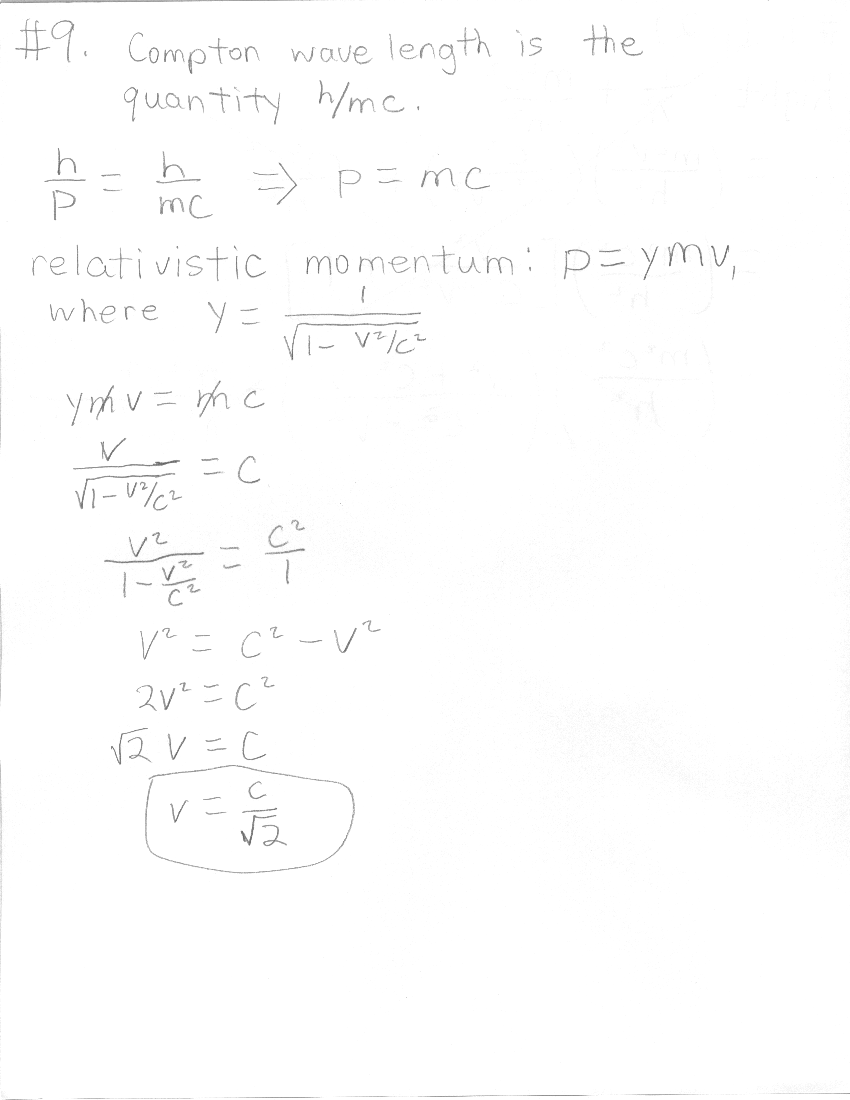 #9. Compton wave length is the
quantity h/mc.
h/p = h/mc ⇒ p = mc
relativistic momentum: p = γmv,
where γ = 1/√(1 - v²/c²)
γmv = mc
v/√(1 - v²/c²) = c
v²/(1 - v²/c²) = c²/1
v² = c² - v²
2v² = c²
√2 v = c
v = c/√2